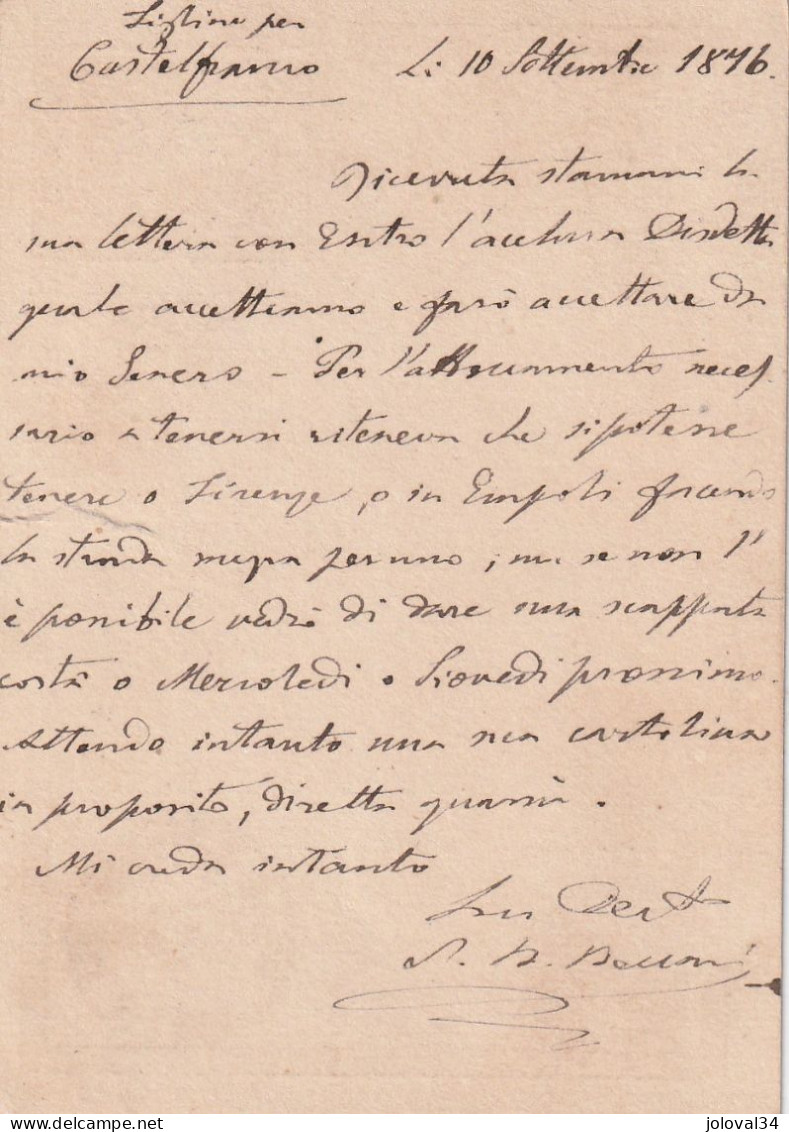 Figline per
Castelfranco Li 10 Settembre 1876.
Ricevuta stamani la
sua lettera con Entro l'acclusa Disdetta
quale accettiamo e farò accettare da
mio Genero - Per l' necess
sario a tenersi riteneva che si potesse
tenere o Firenze, o in Empoli facendo
la strada mezza per uno, ma se non l'
è possibile vedrò di dare una scappata
costà o Mercoledì o Giovedì prossimo.
Attendo intanto una sua cartolina
in proposito, diretta quassù.
Mi creda intanto
Suo
delcampe.net
joloval34